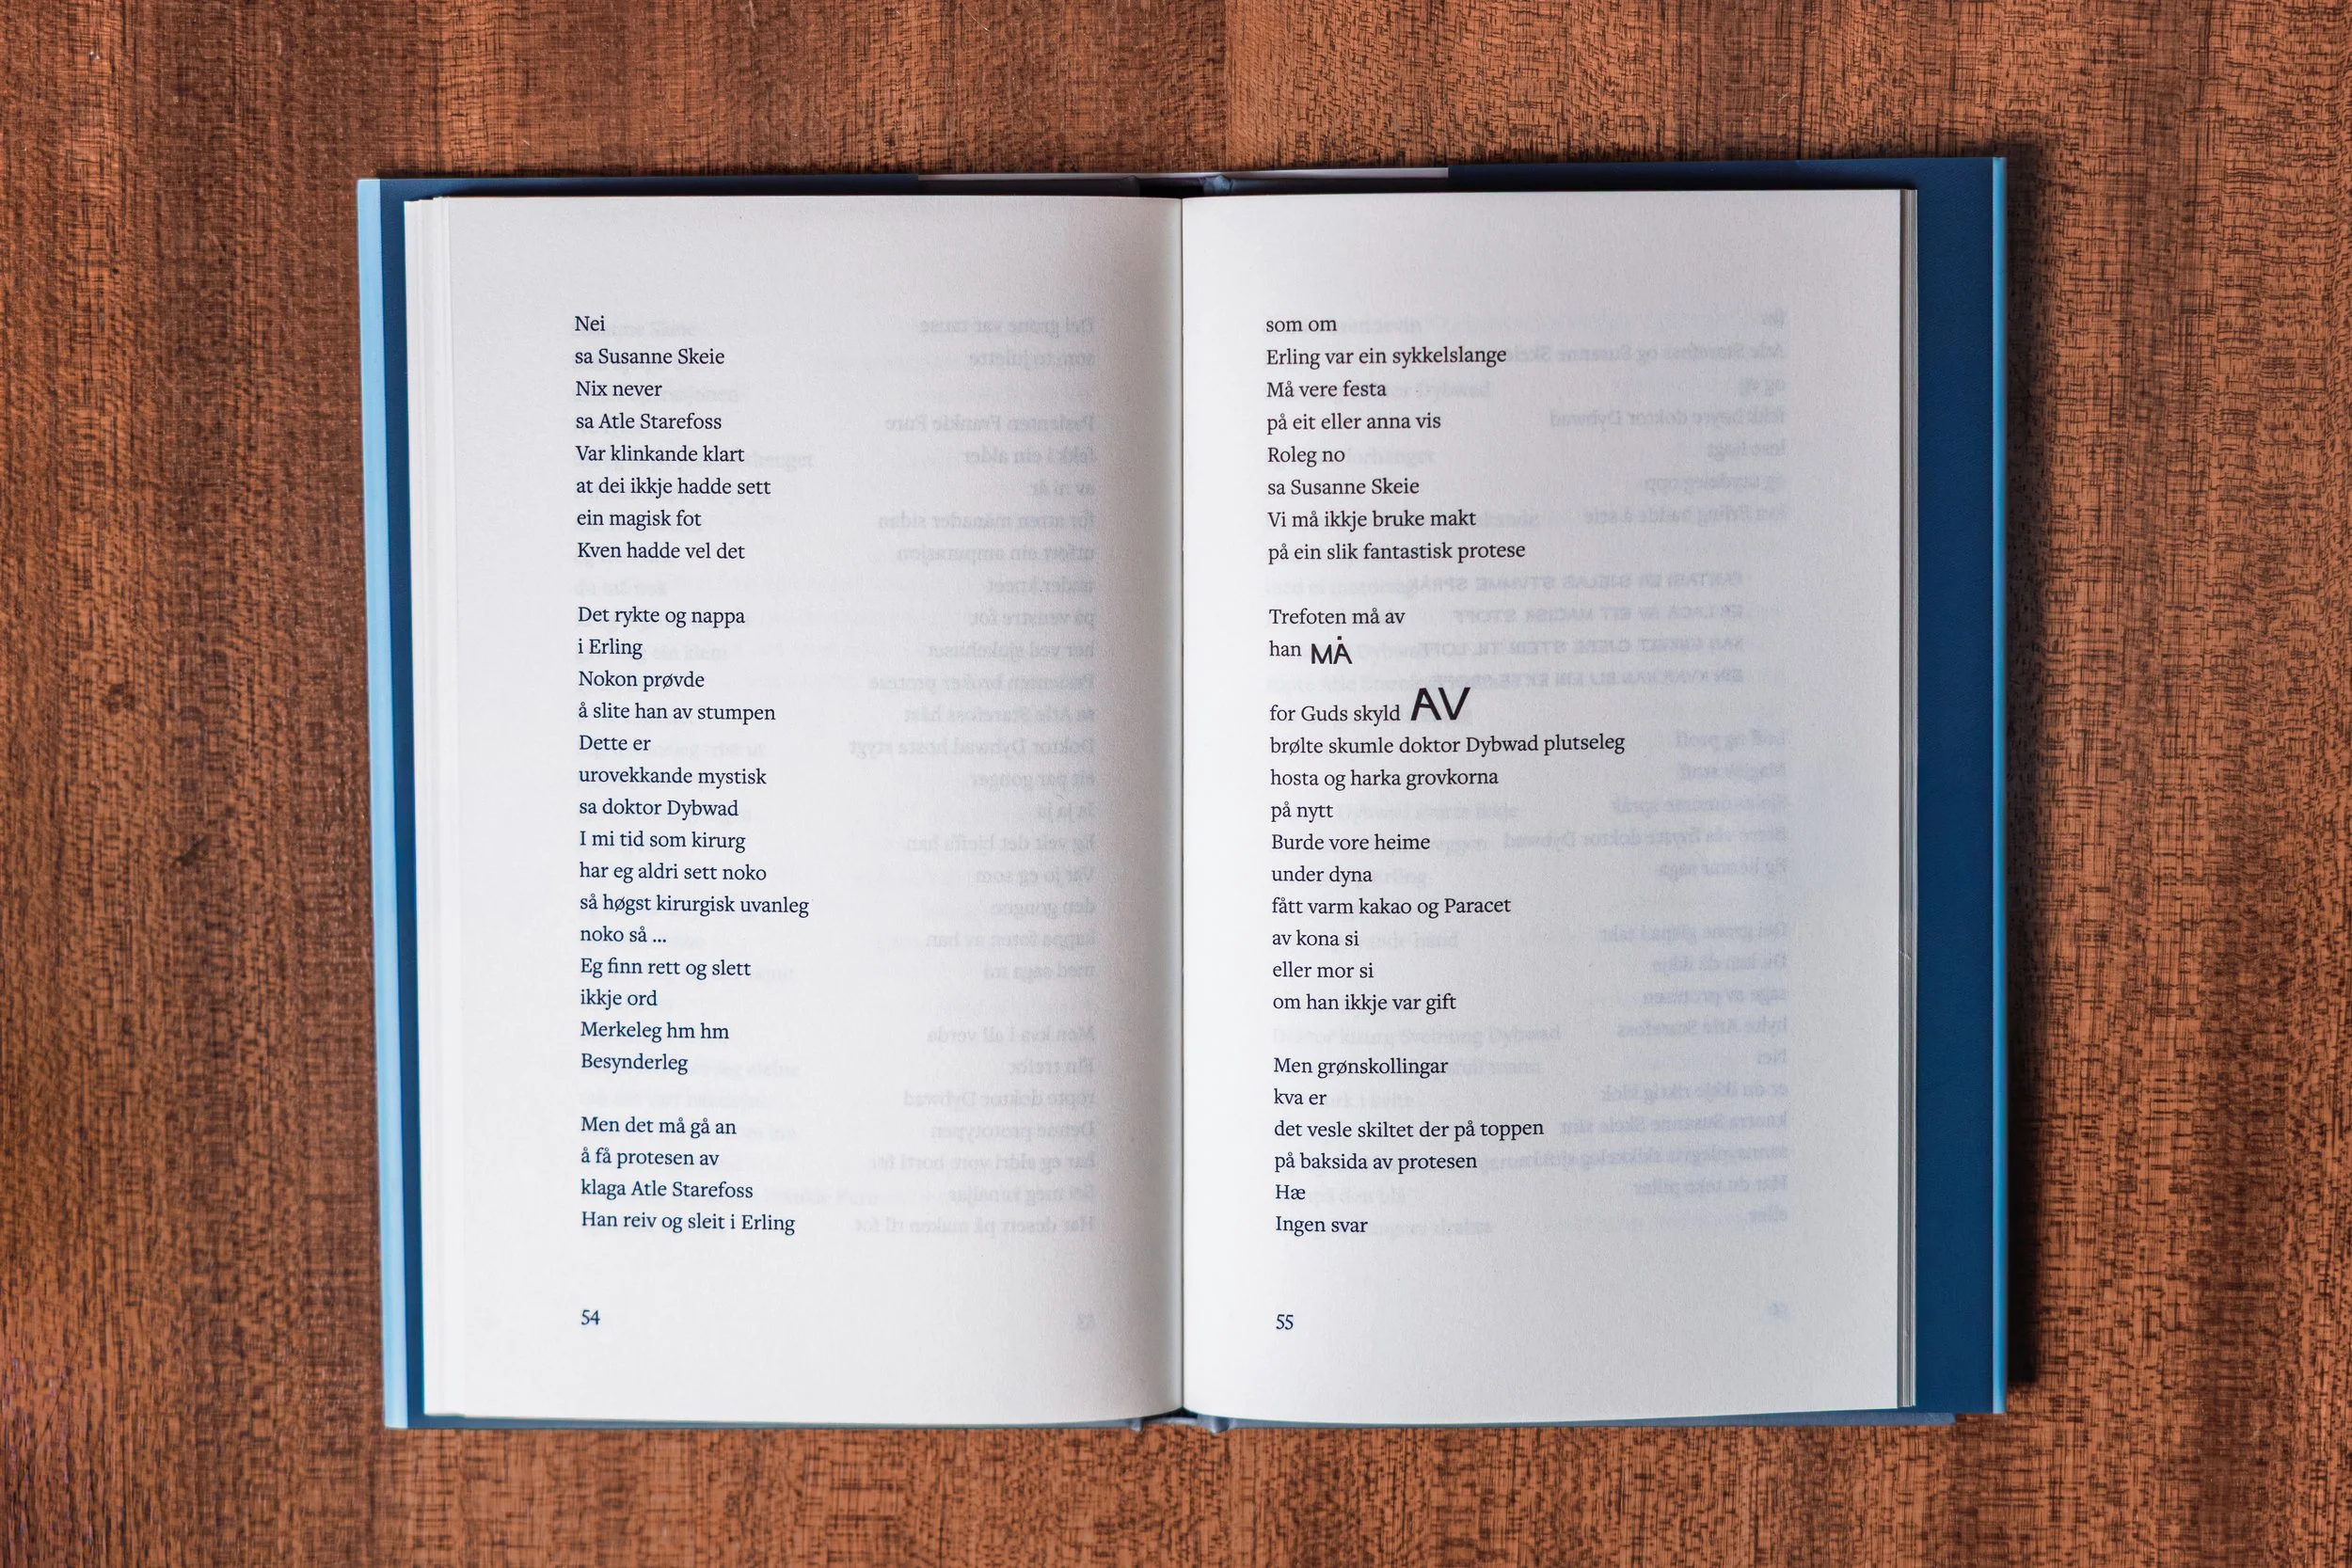 Nei
sa Susanne Skeie
Nix never
sa Atle Starefoss
Var klinkande klart
at dei ikkje hadde sett
ein magisk fot
Kven hadde vel det
Det rykte og nappa
i Erling
Nokon prøvde
å slite han av stumpen
Dette er
urovekkande mystisk
sa doktor Dybwad
I mi tid som kirurg
har eg aldri sett noko
så høgst kirurgisk uvanleg
noko så ...
Eg finn rett og slett
ikkje ord
Merkeleg hm hm
Besynderleg
Men det må gå an
å få protesen av
klaga Atle Starefoss
Han reiv og sleit i Erling
54
som om
Erling var ein sykkelslange
Må vere festa
på eit eller anna vis
Roleg no
sa Susanne Skeie
Vi må ikkje bruke makt
på ein slik fantastisk protese
Trefoten må av
han MÅ
for Guds skyld AV
brølte skumle doktor Dybwad plutseleg
hosta og harka grovkorna
på nytt
Burde vore heime
under dyna
fått varm kakao og Paracet
av kona si
eller mor si
om han ikkje var gift
Men grønskollingar
kva er
det vesle skiltet der på toppen
på baksida av protesen
Hæ
Ingen svar
55